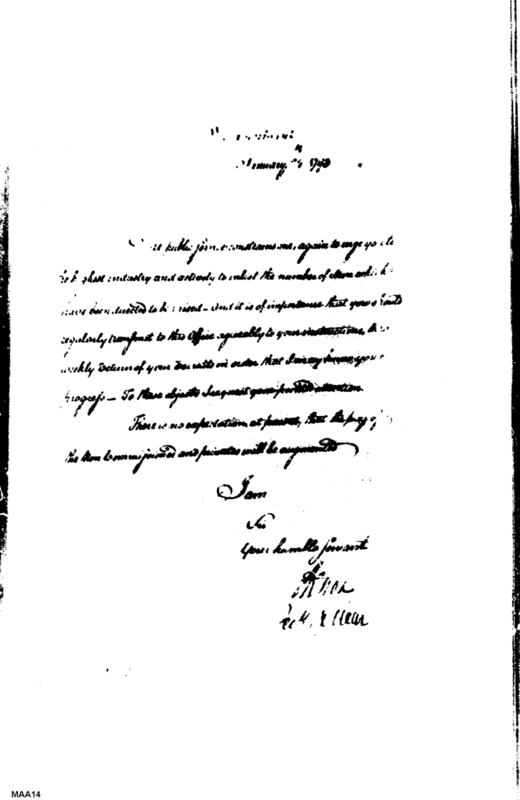 January 1793
public service constrains me, again to urge you to
highest industry and activity to inlist the number of Men which
have been directed to be raised – And it is of importance that you should
regularly transmit to this Office agreably to your instructions, the
weekly return of your recruits in order that I may know your
progress – To these objects I request your pointed attention
There is no expectation, at present, that the pay of
the Non Commissioned and privates will be augmented
I am
Sir
Your humble servant
HKnox
Secy. of War
MAA14